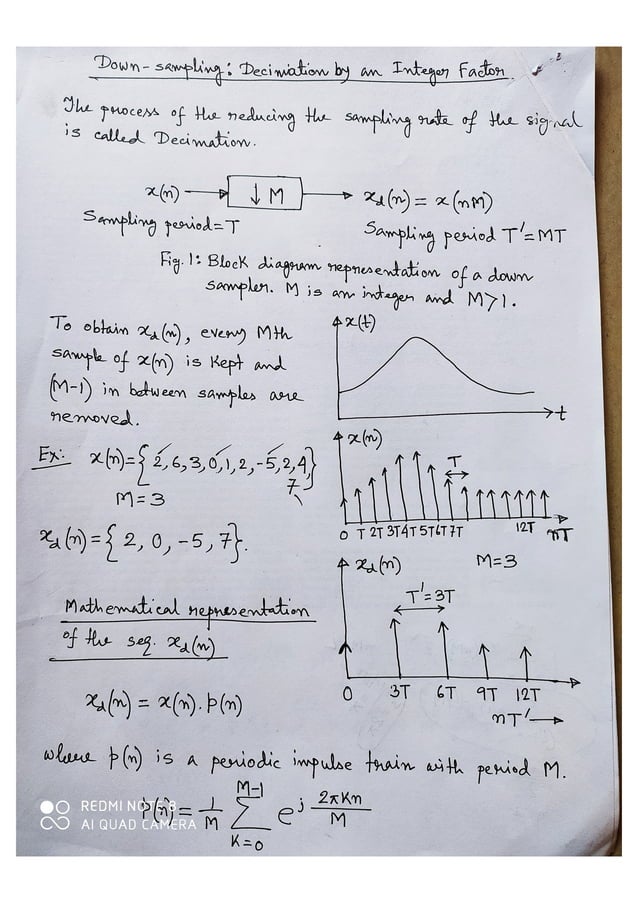 Down-sampling: Decimation by an Integer Factor.
The process of the reducing the sampling rate of the signal
is called Decimation.
x(n) → ↓ M → xd(n) = x(nM)
Sampling period = T
Sampling period T' = MT
Fig. 1: Block diagram representation of a down
sampler. M is an integer and M>1.
To obtain xd(n), every Mth
sample of x(n) is kept and
(M-1) in between samples are
removed.
Ex: x(n) = { 2, 6, 3, 0, 1, 2, -5, 2, 4,
7 }
M = 3
xd(n) = { 2, 0, -5, 7 }.
x(t)
t
x(n)
T
0 T 2T 3T 4T 5T 6T 7T 12T nT
xd(n) M=3
T' = 3T
0 3T 6T 9T 12T
nT' →
Mathematical representation
of the seq. xd(n)
xd(n) = x(n). p(n)
where p(n) is a periodic impulse train with period M.
p(n) = 1/M Σ_{K=0}^{M-1} e^{j 2πKn/M}
REDMI NOTE 8
AI QUAD CAMERA